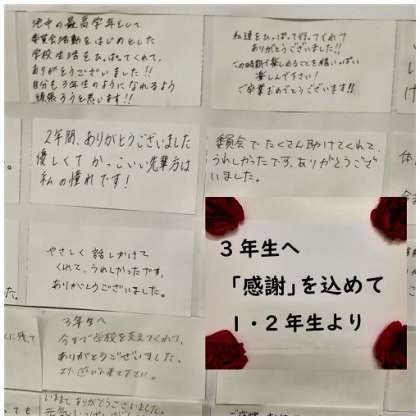 池中の最高学年として
委員会活動をはじめとした
学校生活をひっぱってくれて、
ありがとうございました!!
自分も3年生のようになれるよう
頑張ろうと思います!!
私達をひっぱって行ってくれて
ありがとうございました!!
この時期で楽しめることを精いっぱい
楽しんで下さい!
ご卒業おめでとうございます!!
2年間、ありがとうございました
優しくてかっこいい先輩方は
私の憧れです!
委員会でたくさん助けてくれて、
うれしかったです。ありがとうござ
いました。
やさしく話しかけて
くれて、うれしかったです。
ありがとうございました。
3年生へ
「感謝」を込めて
1・2年生より
3年生へ
今まで学校を支えてくれて、
ありがとうございました。
いままでありがとうございました。